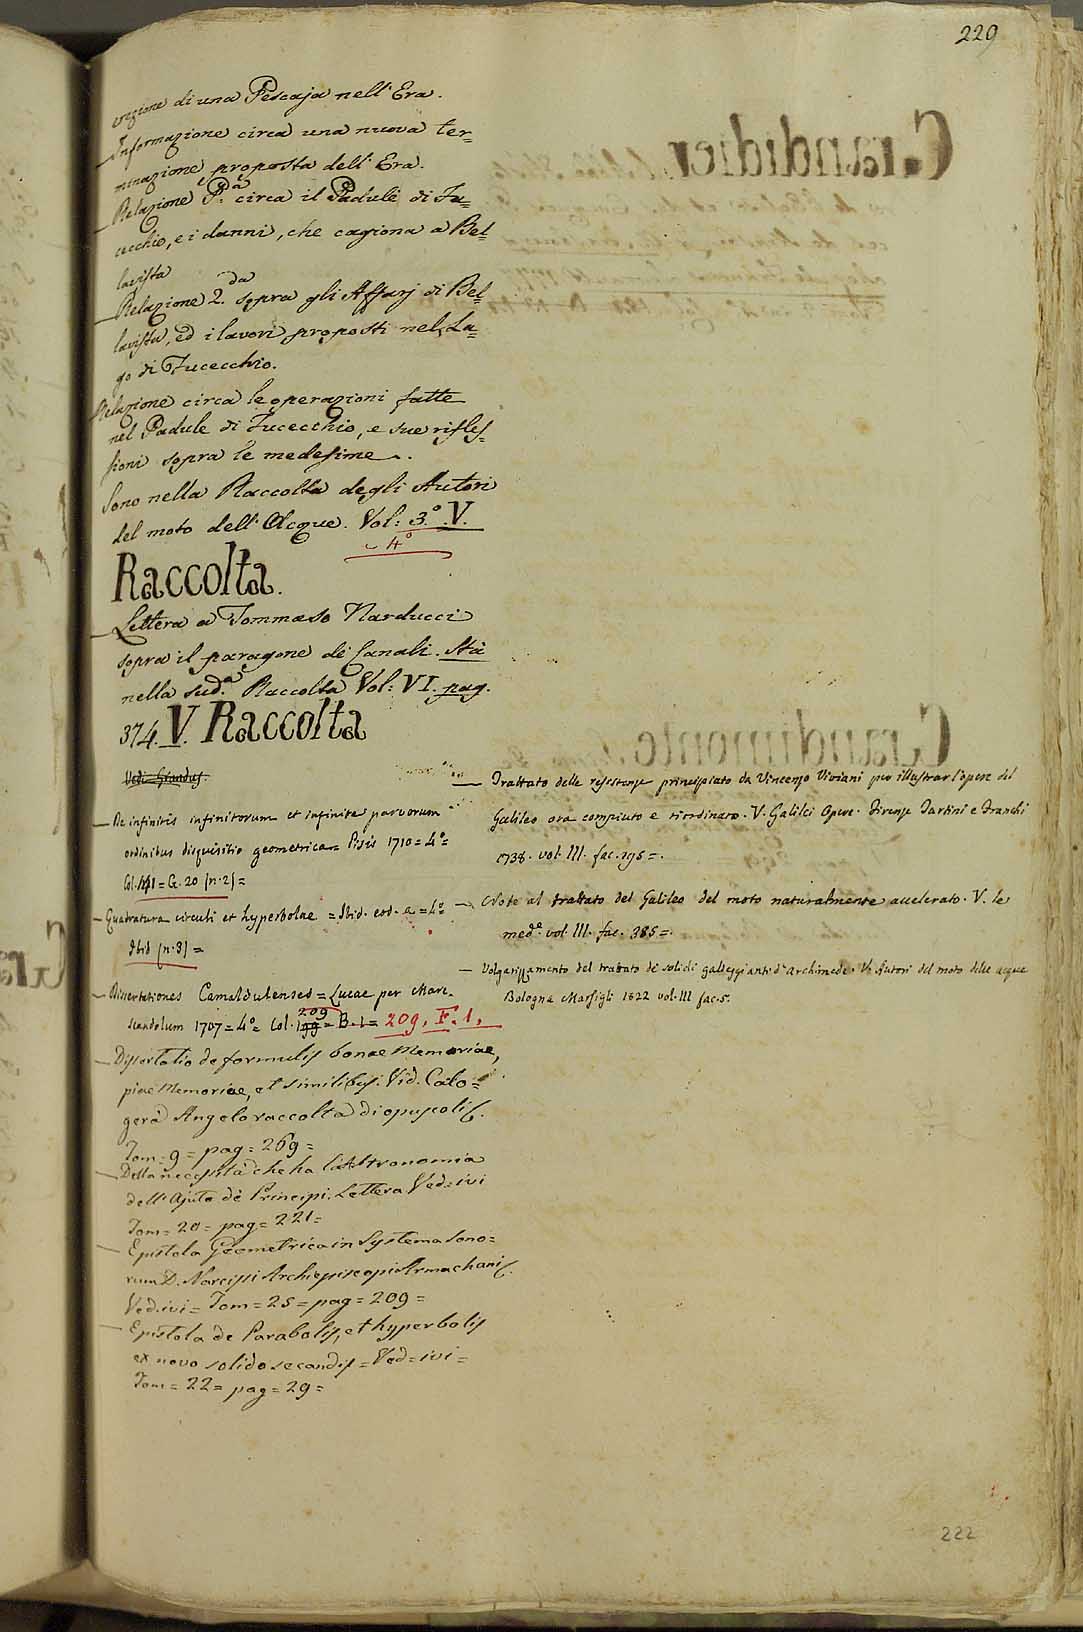 229
enzione di una Pescaja nell' Era.
Informazione circa una nuova ter=
minazione proposta dell' Era.
Relazione P.a circa il Padule di Fu=
cecchio, e i danni, che cagiona a Bel=
lavista
Relazione 2.da sopra gli Affarj di Bel=
lavista, ed i lavori proposti nel La=
go di Fucecchio.
Relazione circa le operazioni fatte
nel Padule di Fucecchio, e sue rifles=
sioni sopra le medesime.
Sono nella Raccolta degli Autori
del moto dell' Acque. Vol: 3.º V.
4º
Raccolta.
Lettera a Tommaso Narducci
sopra il paragone de Canali. Stà
nella sud.a Raccolta Vol: VI. pag.
374. V. Raccolta
Vedi Grandus.
De infinitis infinitorum et infinite parvorum
ordinibus disquisitio geometrica = Pisis 1710 = 4º =
Col. 141 = G. 20 (n. 2) =
Quadratura circuli et hyperbolae = Ibid. eod. a = 4º
Ibid (n. 3) =
Dissertationes Camaldulenses = Lucae per Marc.
209
scandolum 1707 = 4º = Col. 199 = B. 1 = 209. F. 1.
Dissertatio de formulis bonae Memoriae,
piae Memoriae, et similibus. Vid. Calo=
gerà Angelo raccolta di opuscoli.
Tom = 9 = pag = 269 =
Della necessità che ha l'Astronomia
dell' Ajuto de Principi. Lettera Ved = ivi
Tom = 20 = pag = 221 =
Epistola Geometrica in Systema sono=
rum D. Narcissi Archiepiscopi Armachani.
Ved. ivi = Tom = 25 = pag = 209 =
Epistola de Parabolis, et hyperbolis
ex novo solido secandis = Ved = ivi =
Tom = 22 = pag = 29 =
Trattato delle resistenze principiato da Vincenzo Viviani per illustrar l'opere del
Galileo ora compiuto e riordinato. V. Galilei Opere. Firenze Tartini e Franchi
1738. vol. III. fac. 195 =.
Note al trattato del Galileo del moto naturalmente accelerato. V. le
med.e vol. III. fac. 385 =.
Volgarizzamento del trattato de solidi galleggianti d'Archimede. V. Autori del moto delle acque
Bologna Marsigli 1822 vol. III fac. 5.
222